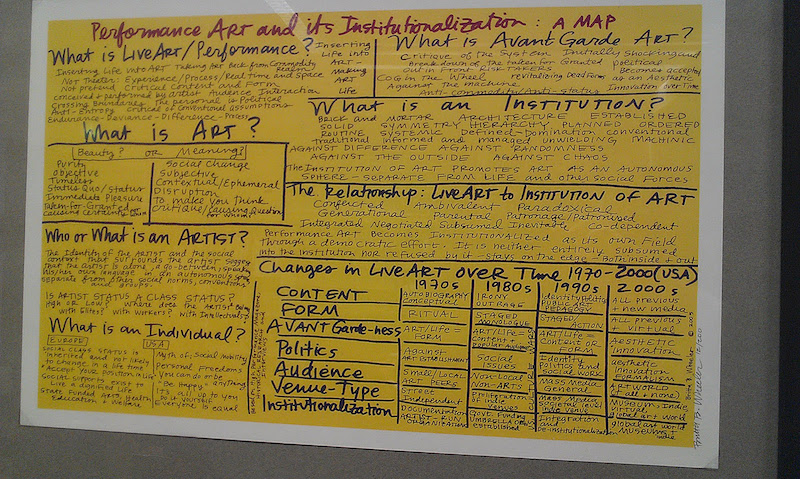 Performance Art and its Institutionalization: A MAP
What is LiveArt/Performance?
Inserting Life into ART taking Art Back from Commodity
Not Theater - Experience/Process/Real time and Space
Not pretend Critical Content and Form
conceived + performed by artist Audience Interaction
Crossing Boundaries The personal is Political
Anti-Entropy Critical of Conventional assumptions
Endurance-Deviance-Difference-Process
Inserting
Life into
ART -
Making
ART
Life
What is Avant Garde ART?
Critique of the System Initially shocking and
Break down of the taken for Granted political
Out in Front RISK TAKERS Becomes accepted
Cog in the Wheel revitalizing Dead Forms as an Aesthetic
Against the machine Innovation over Time
Anti-commodity/Anti-status
What is an INSTITUTION?
BRICK and MORTAR ARCHITECTURE ESTABLISHED
SOLID SYMMETRY HIERARCHY PLANNED ORDERED
ROUTINE SYSTEMIC Defined-Domination conventional
traditional informed and managed unyielding MACHINIC
AGAINST DIFFERENCE AGAINST RANDOMNESS
AGAINST THE OUTSIDE AGAINST CHAOS
The INSTITUTION OF ART PROMOTES ART AS AN AUTONOMOUS
SPHERE - SEPARATE FROM LIFE and other social Forces
What is ART?
Beauty? OR Meaning?
Purity
Objective
Timeless
Status Quo/status
Immediate Pleasure
Taken-for-Granted
Social Change
Subjective
Contextual/Ephemeral
Disruption
To make you Think
Critique/causing Question
The Relationship: LIVE ART to INSTITUTION OF ART
Conflicted Ambivalent Paradoxical
Generational Parental Patronage/Patronised
Integrated Negotiated Subsumed Inevitable Co-dependent
Performance Art Becomes Institutionalized as its own Field
Through a democratic effort. It is neither entirely subsumed
into the institution nor refused by it - stays on the edge - Both inside + out
Who or What is an ARTIST?
The Identity of the ARTIST and the social
context that surrounds the artist. Suggest
that the artist is alone, a go-between, speaking
his/her own language in an autonomous sphere
separate from other social norms, conventions
and groups.
IS ARTIST STATUS A CLASS STATUS?
High or Low? Where does the Artist fit?
with Elites? with workers? with Intellectuals?
What is an Individual?
EUROPE
Social class status is
inherited and not likely
to change in a life time
"Accept your Position in Life"
Social supports exist to
Live a dignified life
State Funded Arts, Health
Education + Welfare
USA
Myth of: Social Mobility
Personal Freedoms
You can do or be
"Be Happy" anything
It's all up to you
Do it yourself
Everyone is equal
Changes in LIVE ART over Time 1970-2000 (USA)
1970s 1980s 1990s 2000s
CONTENT AUTOBIOGRAPHY CONCEPTUAL IRONY OUTRAGE Identity Politics PUBLIC ART PEDAGOGY ALL previous + new media
FORM RITUAL STAGED MONOLOGUE STAGED/ACTION All previous + virtual
AVANT Garde-ness Art/Life = FORM ART/LIFE = Content + popular Art/Life = Content or FORM AESTHETIC Innovation
Politics Against ESTABLISHMENT Social Issues Identity Politics and Social work Aesthetic Innovation FORMALISM
Audience Small/Local ART PEERS Non-Local Non-Arts Mass Media General ARTWORLD (+ all + none)
Venue-Type Street Independent Proliferation of Indie Venues Mass Media Global Level Indie Venue Museum, Indie, Virtual, Global Art World
Institutionalization Documentation ARTIST-RUN ORGANIZATIONS Govt Funding UMBRELLA established Integration and De-institutionalization global art world MUSEUMS indie